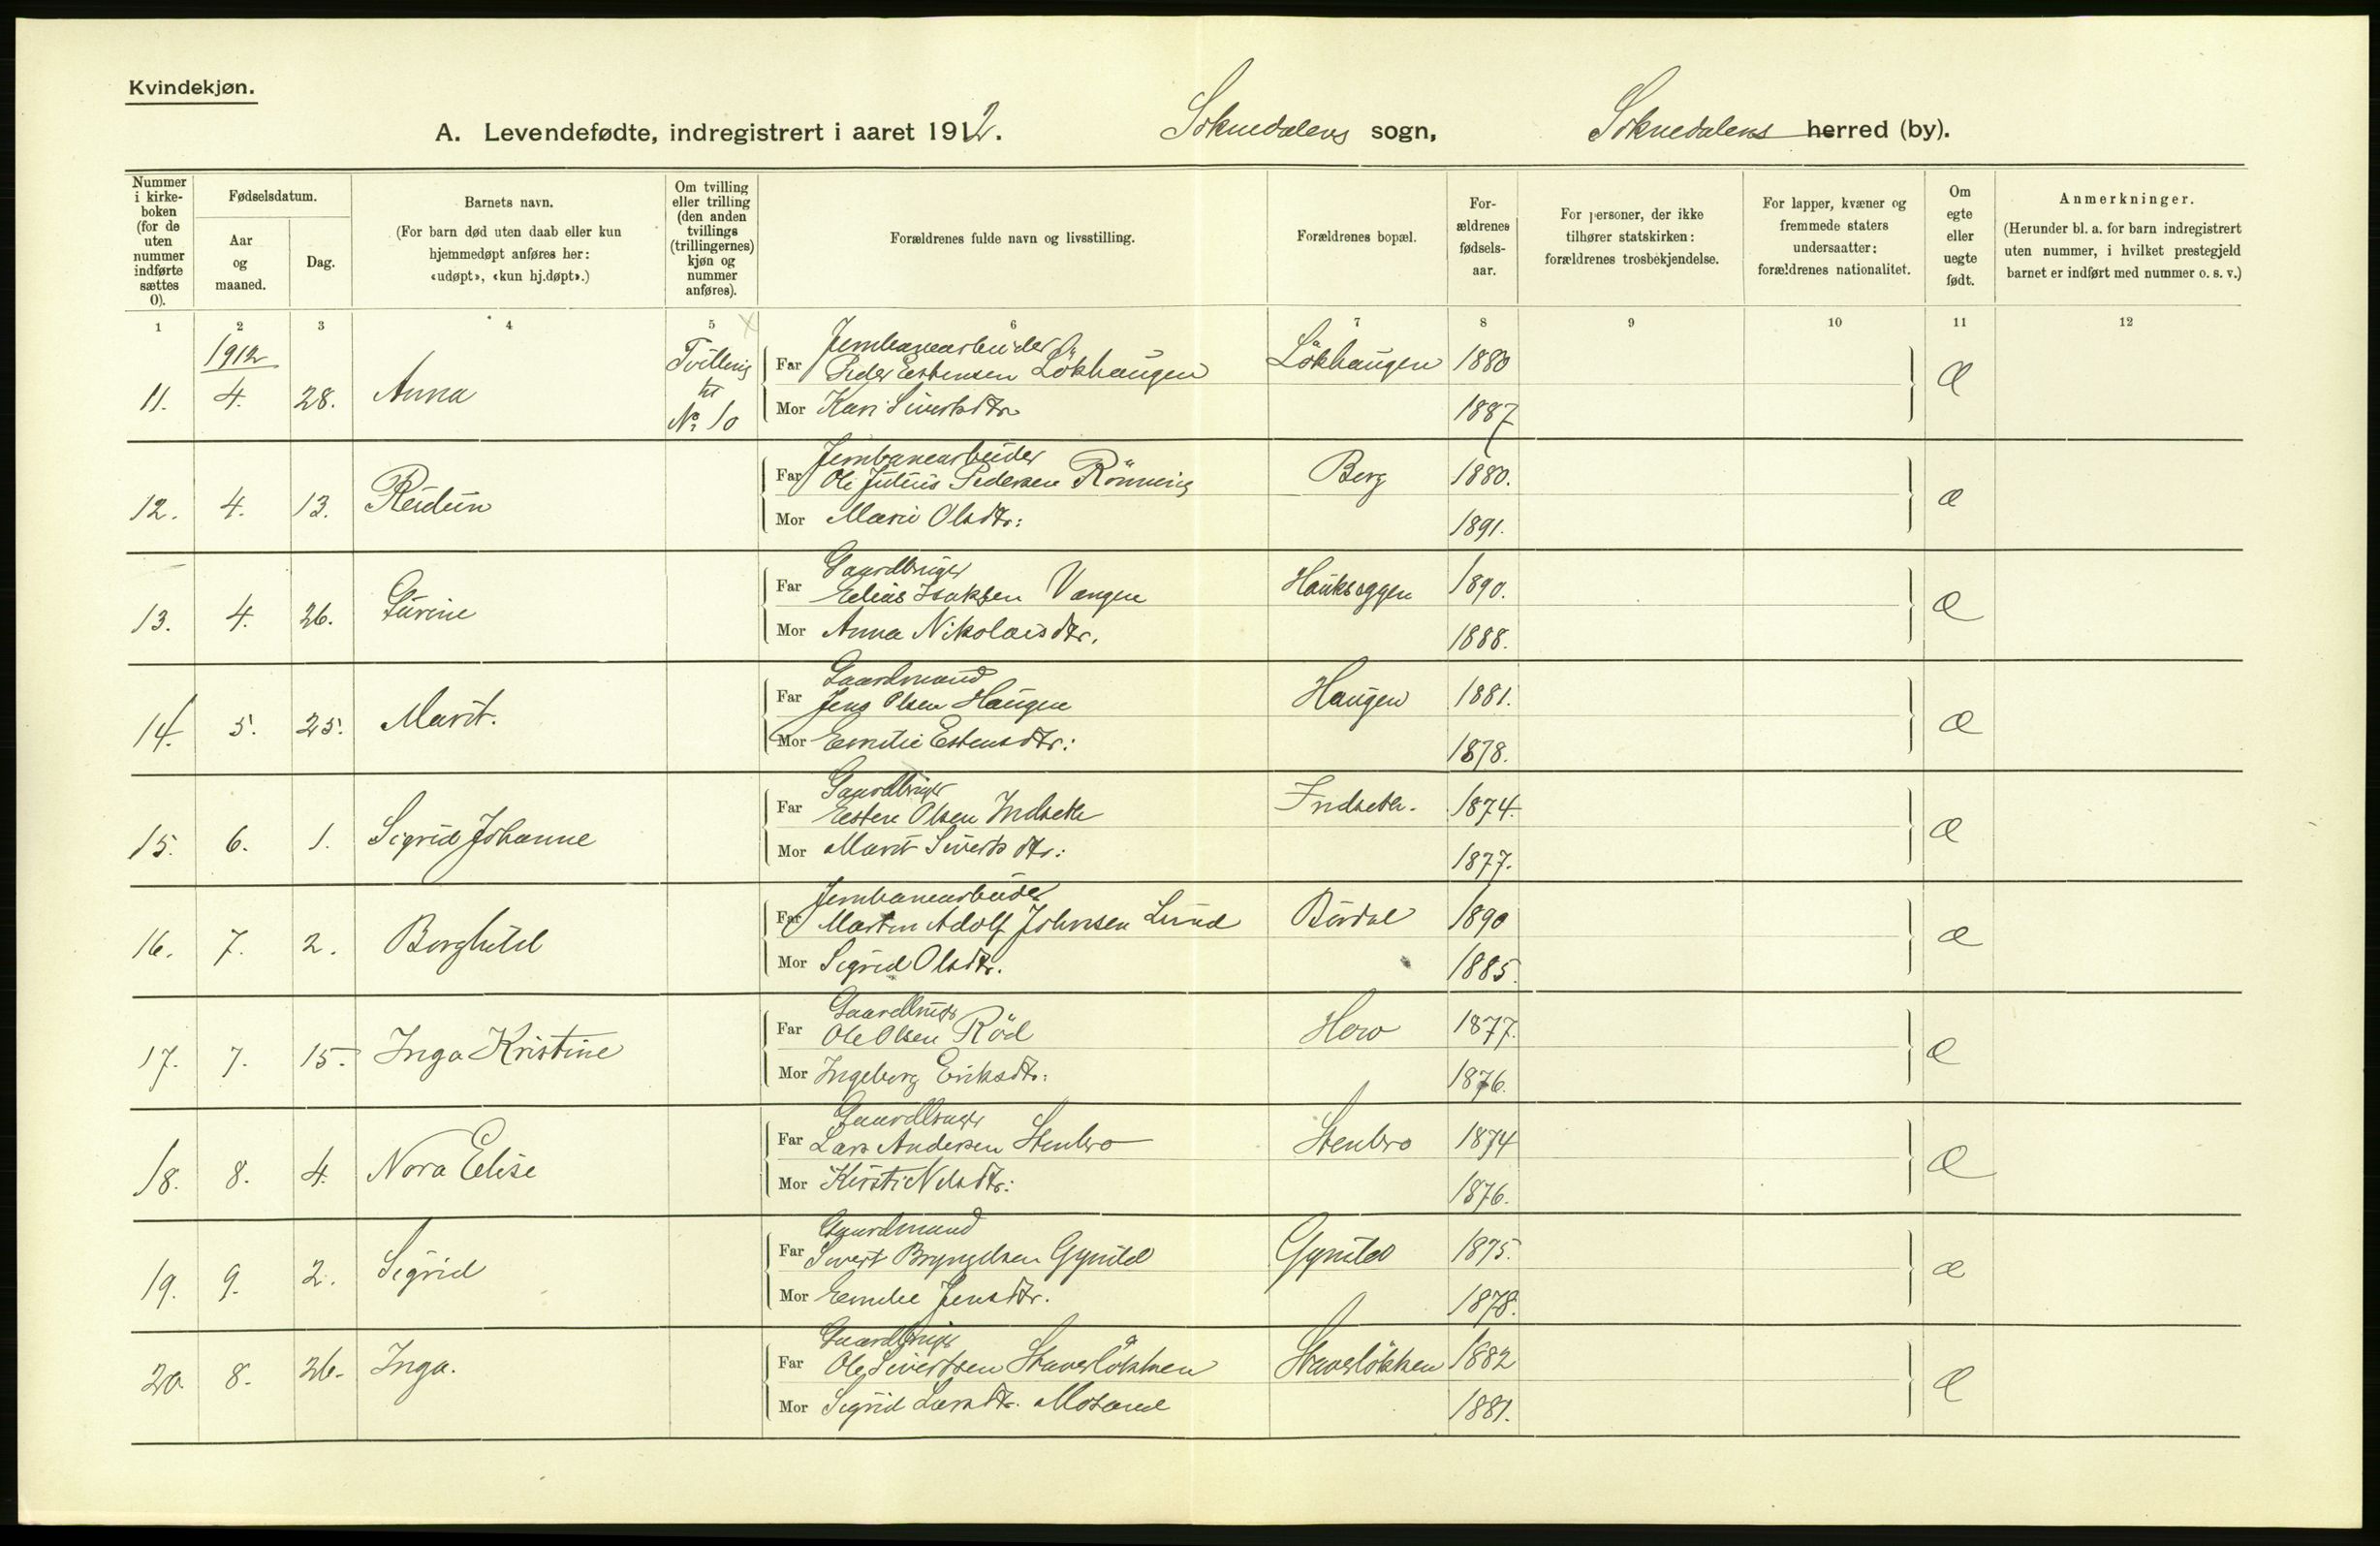 Kvindekjøn.
A. Levendefødte, indregistrert i aaret 1912. Soknedalens sogn, Soknedalens herred (by).
Nummer i kirke- boken (for de uten nummer indførte sættes 0).
Fødselsdatum.
Aar og maaned.
Dag.
Barnets navn.
(For barn død uten daab eller kun hjemmedøpt anføres her: «udøpt», «kun hj.døpt».)
Om tvilling eller trilling (den anden tvillings (trillingernes) kjøn og nummer anføres).
Forældrenes fulde navn og livsstilling.
Forældrenes bopæl.
For- ældrenes fødsels- aar.
For personer, der ikke tilhører statskirken: forældrenes trosbekjendelse.
For lapper, kvæner og fremmede staters undersaatter: forældrenes nationalitet.
Om egte eller uegte født.
Anmerkninger.
(Herunder bl. a. for barn indregistrert uten nummer, i hvilket prestegjeld barnet er indført med nummer o. s. v.)
1 2 3 4 5 6 7 8 9 10 11 12
1912
Jernbanearbeider
11. 4. 28. Anna Tvilling til No 10 Far Peder Estensen Lökhaugen Lökhaugen 1880 Æ
Mor Kari Sivertsdtr 1887
Jernbanearbeider
12. 4. 13. Reidun Far Ole Julius Pedersen Rönning Berg 1880. Æ
Mor Marie Olsdtr: 1891.
Gaardbruger
13. 4. 26. Gurine Far Elias Isaksen Vangen Haukseggen 1890. Æ
Mor Anna Nikolaisdtr. 1888.
Gaardmand
14. 5. 25. Marit. Far Jens Olsen Haugen Haugen 1881. Æ
Mor Emilie Estensdtr: 1878.
Gaardbruger
15. 6. 1. Sigrid Johanne Far Esten Olsen Indseth Indseth. 1874. Æ
Mor Marit Sivertsdtr: 1877.
Jernbanearbeider
16. 7. 2. Borghild Far Martin Adolf Johnsen Lund Burdal 1890 Æ
Mor Sigrid Olsdtr. 1885.
Gaardbruger
17. 7. 15. Inga Kristine Far Ole Olsen Röd Hov 1877. Æ
Mor Ingeborg Eriksdtr: 1876.
Gaardbruger
18. 8. 4. Nora Elise Far Lars Andersen Stenbro Stenbro 1874 Æ
Mor Kirsti Nilsdtr: 1876.
Gaardmand
19. 9. 2. Sigrid Far Sivert Bryngelsen Gynild Gynild 1875. Æ
Mor Emilie Jensdtr. 1878.
Gaardbruger
20. 8. 26. Inga. Far Ole Sivertsen Staverlökken Staverlökken 1882 Æ
Mor Sigrid Larsdtr. Mosand 1881.